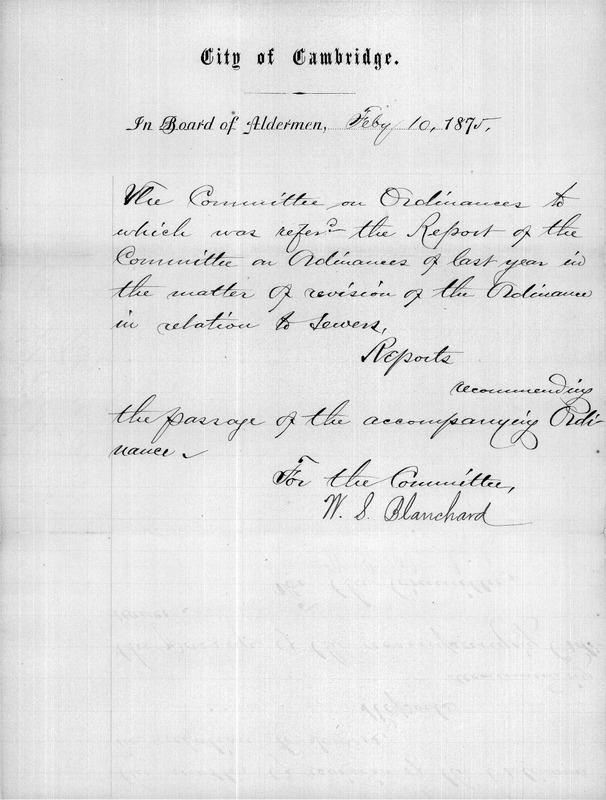 City of Cambridge.
In Board of Aldermen, Feby 10, 1875.
The Committee on Ordinances to
which was refer'd the Report of the
Committee on Ordinances of last year in
the matter of revision of the Ordinance
in relation to Sewers,
Reports
recommending
the passage of the accompanying Ordi-
nance.
For the Committee,
W. S. Blanchard